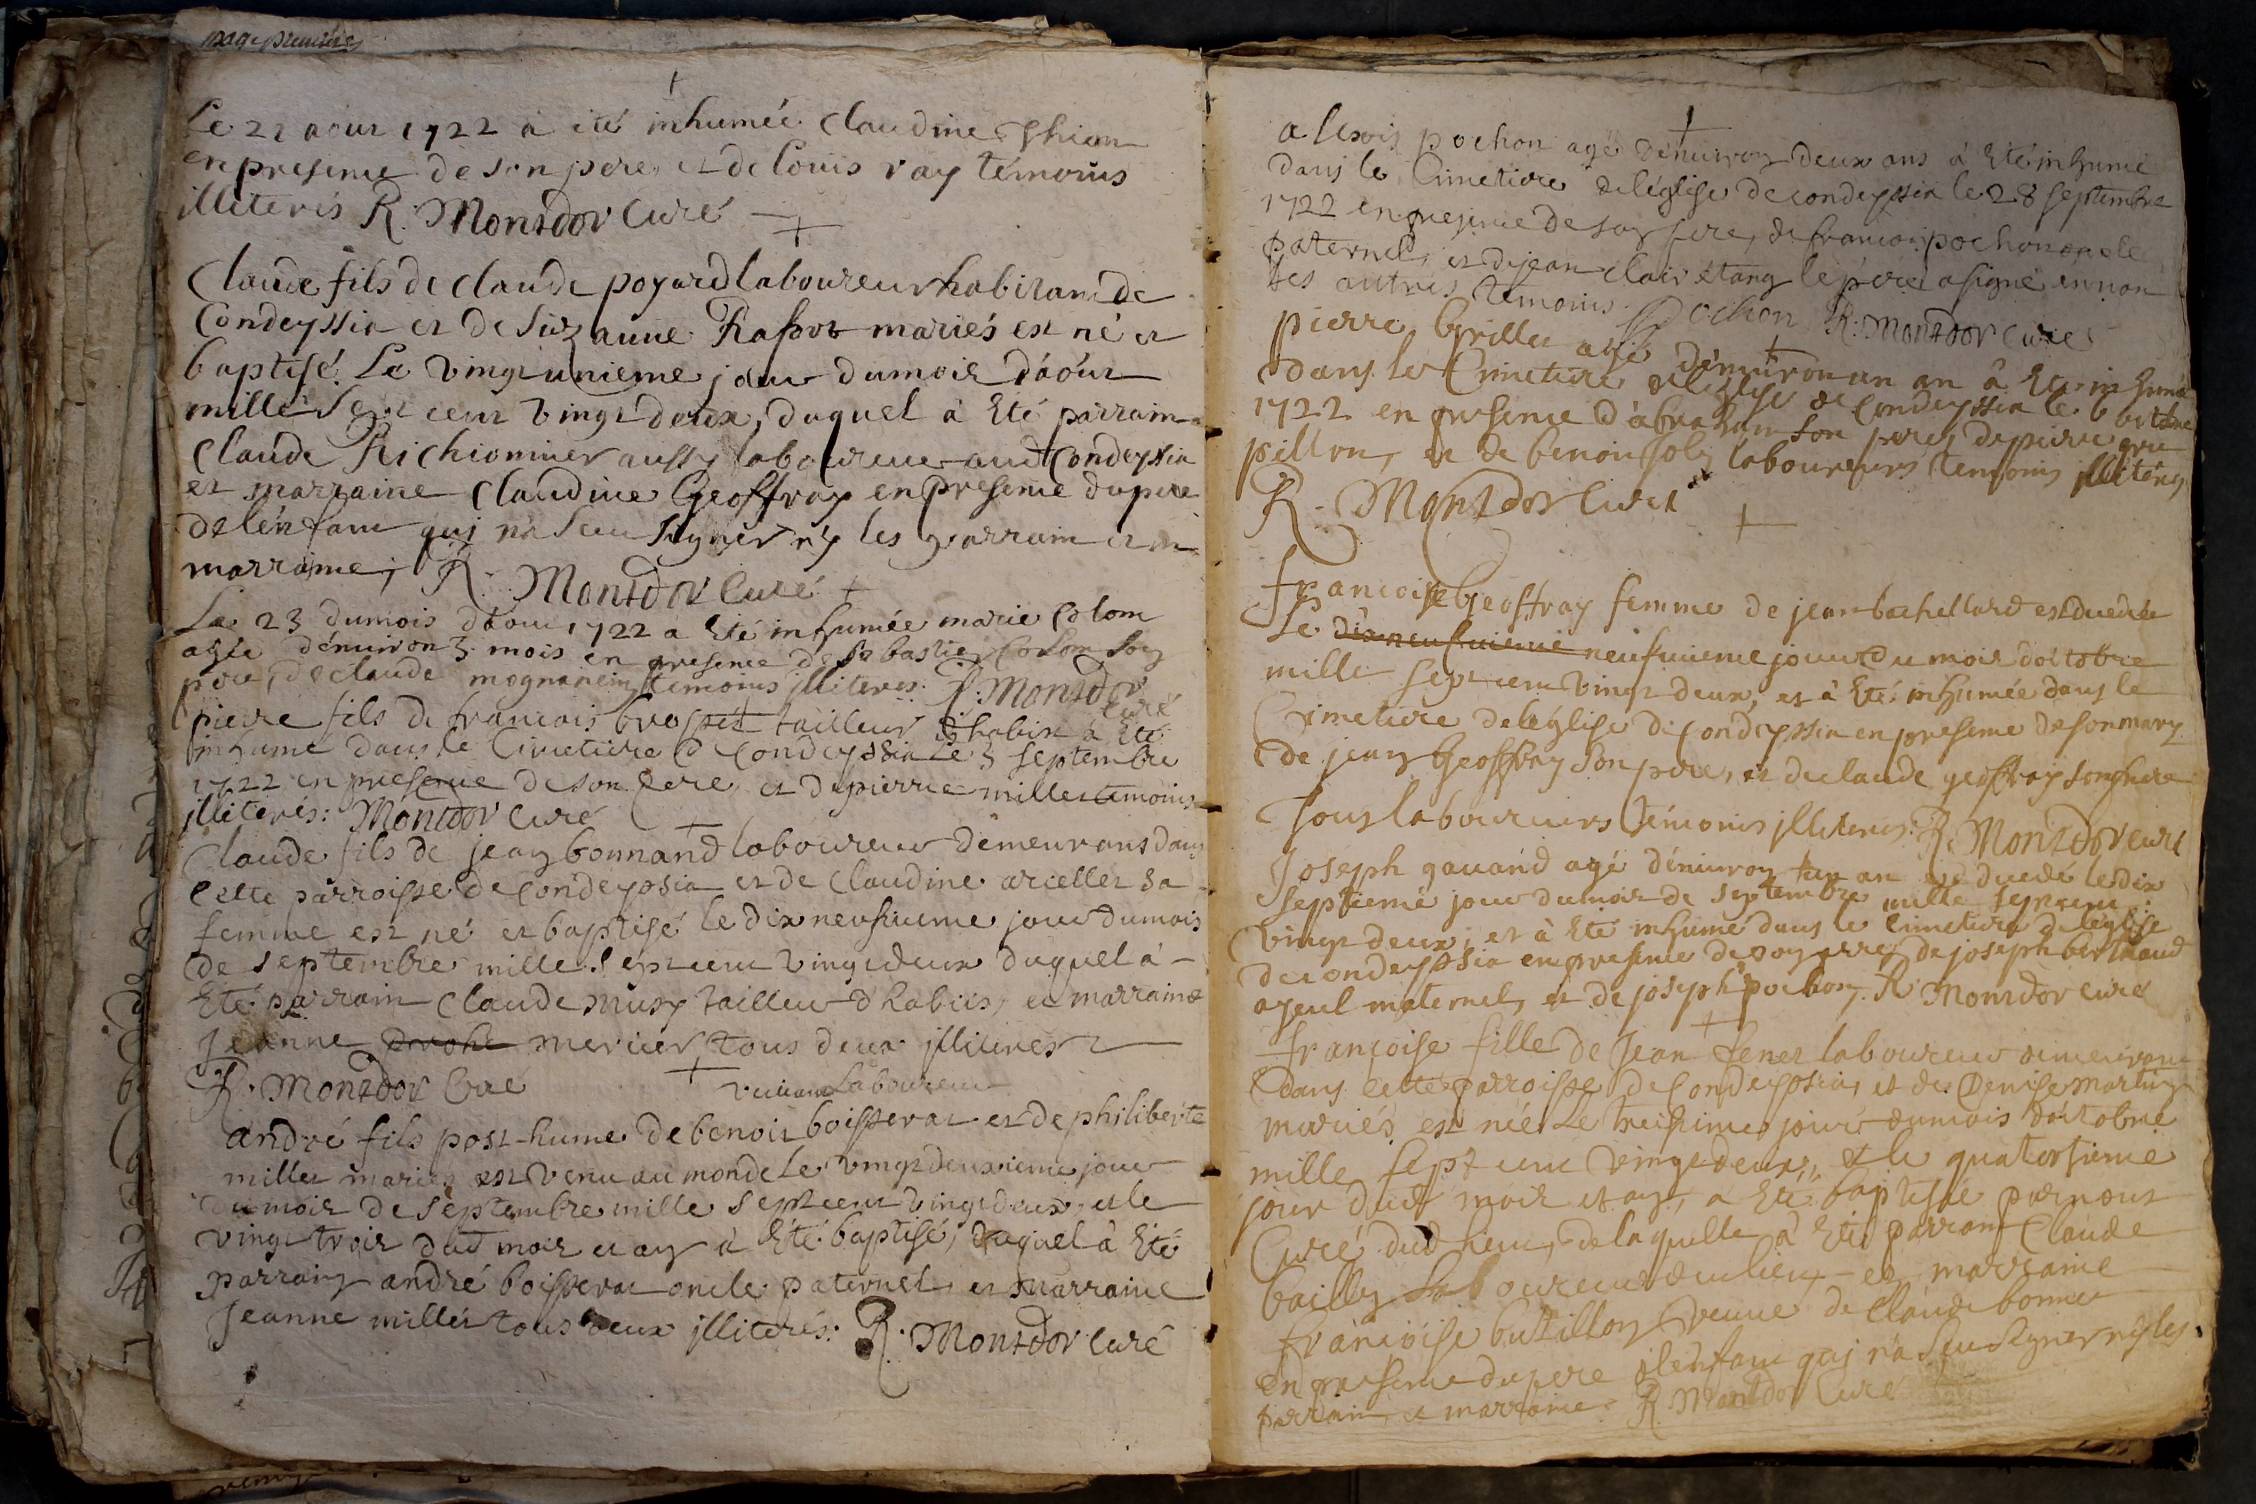 page premiere
Le 22 aout 1722 a été inhumée Claudine
en presence de son pere, et de Louis ray témoins
illiterés R. Montdor Curé
Claude fils de Claude poyard laboureur habitant de
Condeyssia et de Suzanne Rassot mariés est né et
baptisé Le vingt unieme jour du mois d'àout
mille sept cent vingt deux, duquel à Eté parrain
Claude Richiominer aussy laboureur aud Condeyssia
et marraine Claudine Geoffray en presence du pere
de l'énfant qui n'a sceu signer ny les parrain et m
marraine, R. Montdor Curé
Le 23 du mois d'aout 1722 a Eté inhumée marie Colom
agée d'énuiron 3 mois en presence de Sebastien Colom son
pere, de claude mognanein témoins jlliterés. R. Montdor
Curé
pierre fils de francois brosset tailleur d'habist à Eté
inhumé dans le Cimetiere de Condeyssia Le 3 septembre
1722 en presence de son pere, et de pierre millet temoins
jlliterés: Montdor Curé
Claude fils de jean bonnand laboureur demeurant dans
Cette pàrroisse de Condeyssia et de Claudine arcellet sa
femme est né et baptisé le dix neufuieme jour du mois
de septembre mille sept cent vingt deux duquel à
Eté parrain Claude musy tailleur d'habits, et marraine
jeanne mercier, tous deux jlliterés
R. Montdor Curé
viuant Laboureur
andré fils post-hume de benoit boisserat et de philiberte
millet mariés est venu au monde Le vingt deuxieme jour
du mois de septembre mille sept cent vingt deux, et le
vingt trois dud mois et an à Eté baptisé, duquel à Eté
parrain andré boisserat oncle paternel, et marraine
Jeanne millet tous deux jlliterés: R. Montdor Curé
alexois pochon agé d'énuiron deux ans à Eté inhumé
dans le Cimetiere de l'église de condeyssia le 28 septembre
1722 en presence de son pere, de francois pochon oncle
paternel, et de jean clair étang le pére a signé, et non
les autres témoins. Pochon R. Montdor Curé
pierre Grillet agé d'énuiron un an à Eté inhumé
dans le Cimetiere de l'église de Condeyssia le 6 octobre
1722 en presence d'abraham son pere, de pierre gru
pillon, et de benoit joly laboureurs temoins jlliterés
R. Montdor Curé
francoise Geoffray femme de jean bachellard est decedée
Le dix neufuieme neufuieme jour du mois d'octobre
mille sept cent vingt deux, et à Eté inhumée dans le
Cimetiere de l'église de Condeyssia en presence de son mary
de jean Geoffray son pere, et de claude geoffray son frere
Tous laboureurs témoins jlliterés: R. Montdor curé
Joseph gauand agé d'énuiron un an est decedé le dix
septieme jour du mois de septembre mille sept cent
vingt deux, et à Eté inhumé dans le Cimetiere de l'église
de condeyssia en presence de son pere, de joseph berthaud
ayeul maternel, et de joseph pochon. R. Montdor Curé
françoise fille de Jean feret laboureur demeurant
dans cette parroisse de Condeyssia, et de Denise martin
mariés est née Le treisieme jour du mois d'octobre
mille sept cent vingt deux, et le quatorsieme
jour dud mois et an, a Eté baptisée par nous
Curé dud lieu, de laquelle à Eté parrain Claude
bailly Laboureur dud lieu, et marraine
françoise butillon veuue de Claude bonnet
en presence du pere de l'énfant qui n'a sceu signer ny les
parrain et marraine R. Montdor Curé